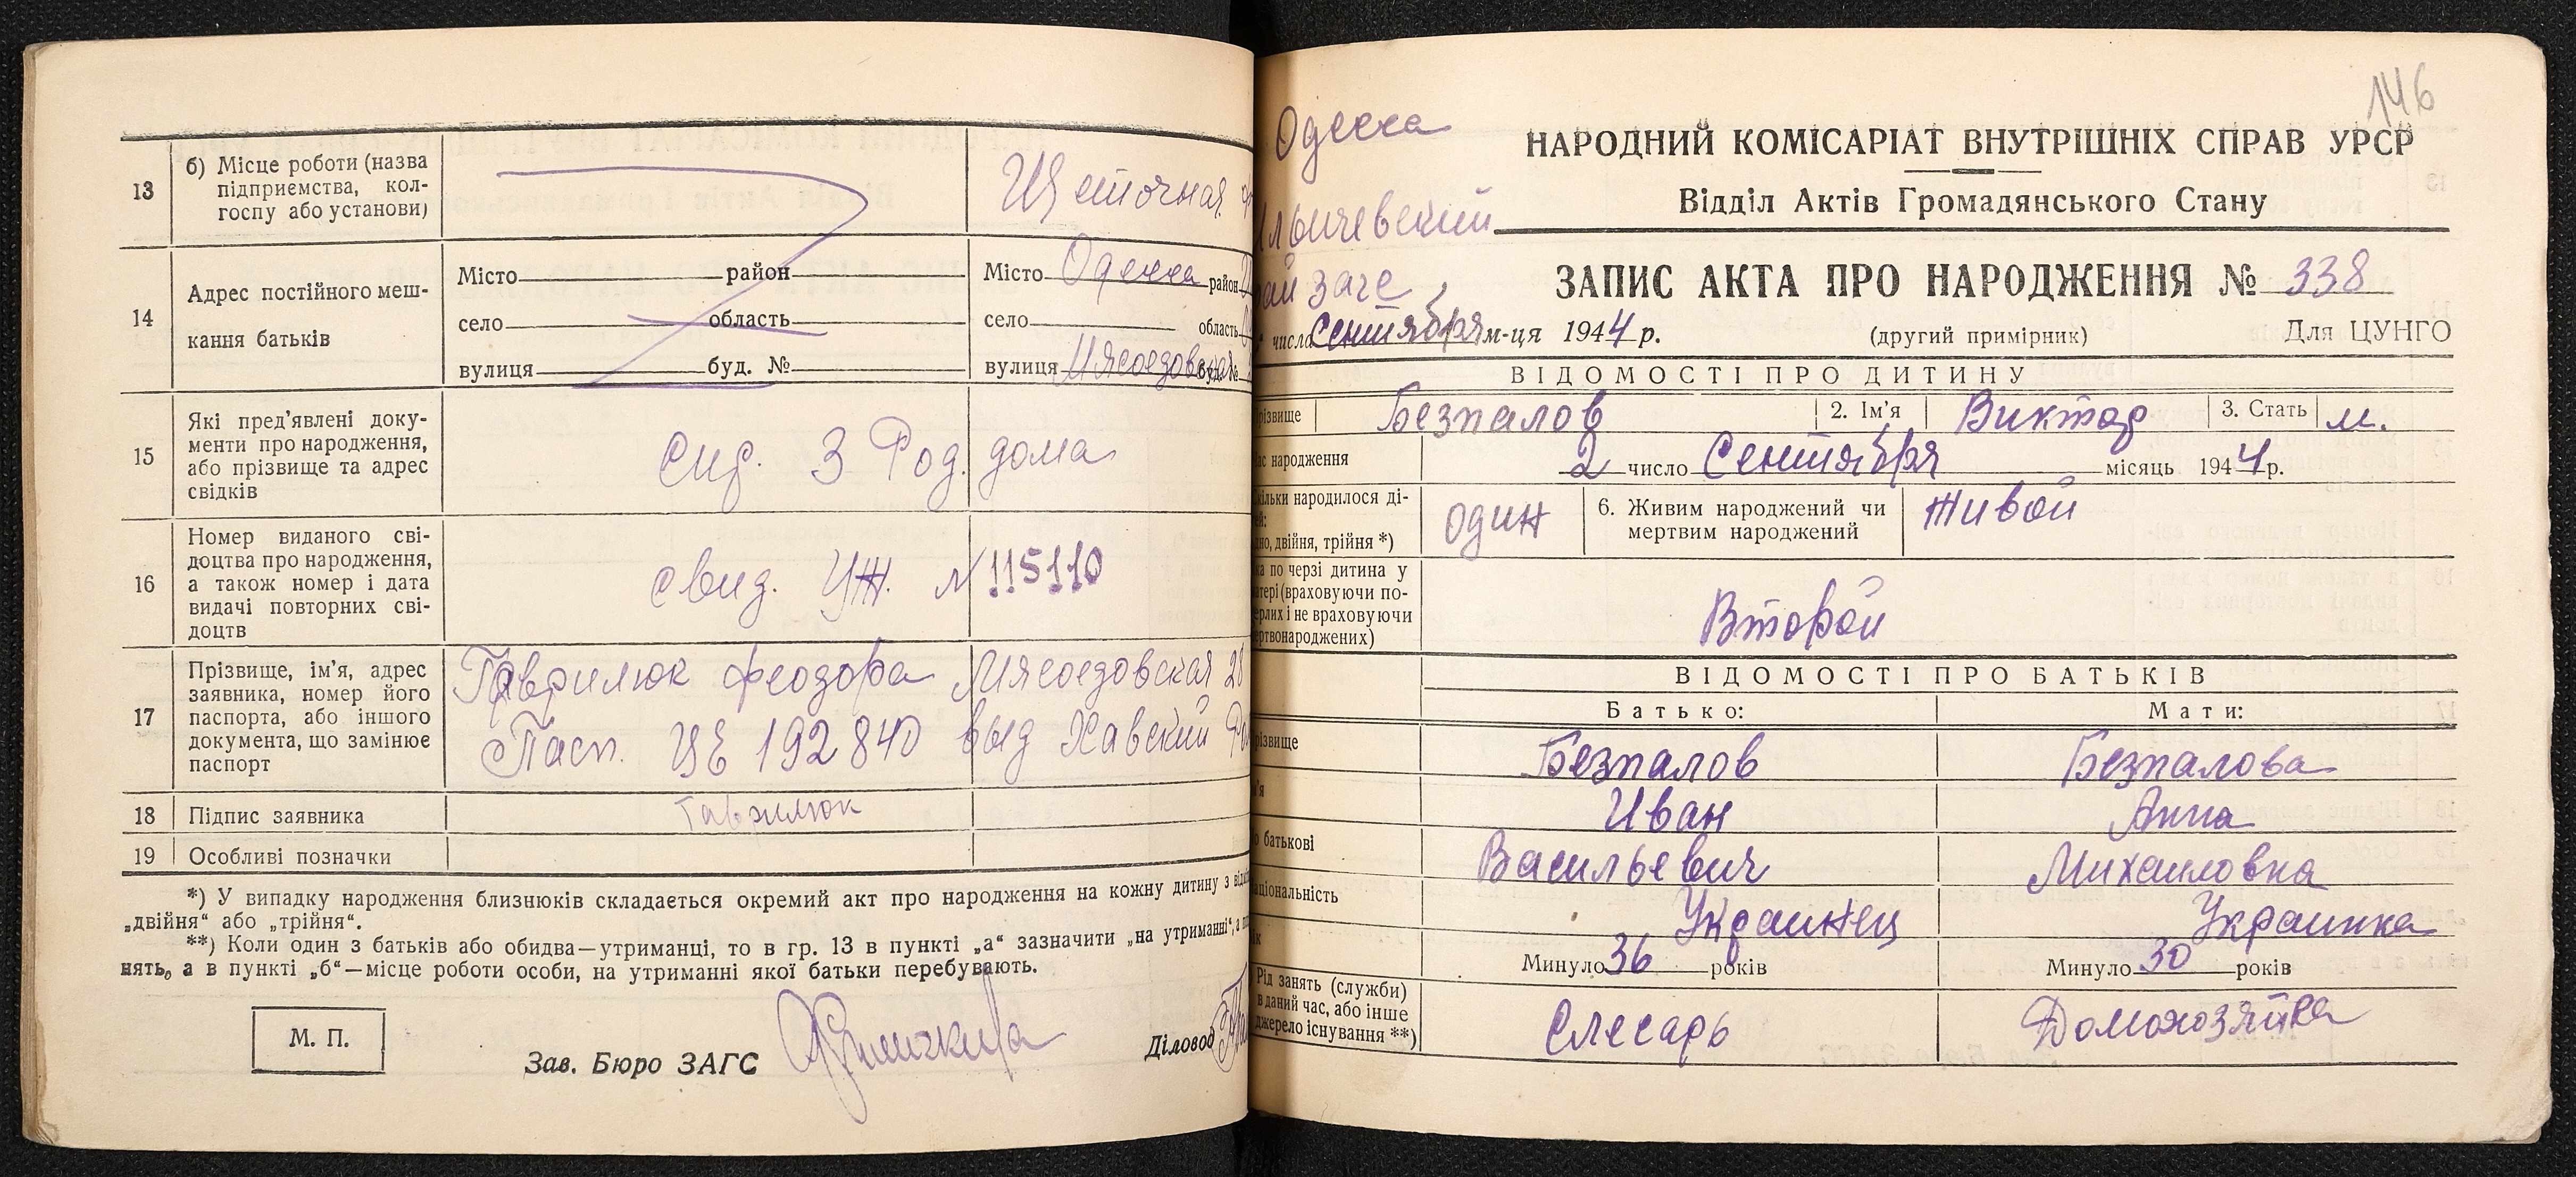 13
б) Місце роботи (назва
підприємства, кол-
госпу або установи)
Щеточная
14
Адрес постійного меш-
кання батьків
Місто район
село область
вулиця буд. №
Місто Одесса район
село область
вулиця Мясоедовская буд. №
15
Які пред'явлені доку-
менти про народження,
або прізвище та адрес
свідків
Спр. 3 Род. дома
16
Номер виданого сві-
доцтва про народження,
а також номер і дата
видачі повторних сві-
доцтв
свид. УЖ. № 115110
17
Прізвище, ім'я, адрес
заявника, номер його
паспорта, або іншого
документа, що замінює
паспорт
Гаврилюк Феодора Мясоедовская 28
Пасп. 192840 выд Хавский
18 Підпис заявника
Гаврилюк
19 Особливі позначки
*) У випадку народження близнюків складається окремий акт про народження на кожну дитину з
„двійня“ або „трійня“.
**) Коли один з батьків або обидва—утриманці, то в гр. 13 в пункті „а“ зазначити „на утриманні“,
нять, а в пункті „б“—місце роботи особи, на утриманні якої батьки перебувають.
М. П.
Зав. Бюро ЗАГС
Діловод
146
Одесса
льичевский
ай загс
НАРОДНИЙ КОМІСАРІАТ ВНУТРІШНІХ СПРАВ УРСР
Відділ Актів Громадянського Стану
ЗАПИС АКТА ПРО НАРОДЖЕННЯ № 338
числа Сентября м-ця 1944 р. (другий примірник) Для ЦУНГО
ВІДОМОСТІ ПРО ДИТИНУ
різвище Безпалов 2. Ім'я Виктор 3. Стать м.
ас народження 2 число Сентября місяць 1944 р.
ільки народилося ді-
ей:
но, двійня, трійня *)
один
6. Живим народжений чи
мертвим народжений
Живой
ка по черзі дитина у
атері (враховуючи по-
ерлих і не враховуючи
ертвонароджених)
Второй
ВІДОМОСТІ ПРО БАТЬКІВ
Батько: Мати:
різвище Безпалов Безпалова
м'я Иван Анна
о батькові Васильевич Михаиловна
аціональність Украинец Украинка
ік Минуло 36 років Минуло 30 років
Рід занять (служби)
в даний час, або інше
джерело існування **)
Слесарь Домохозяйка